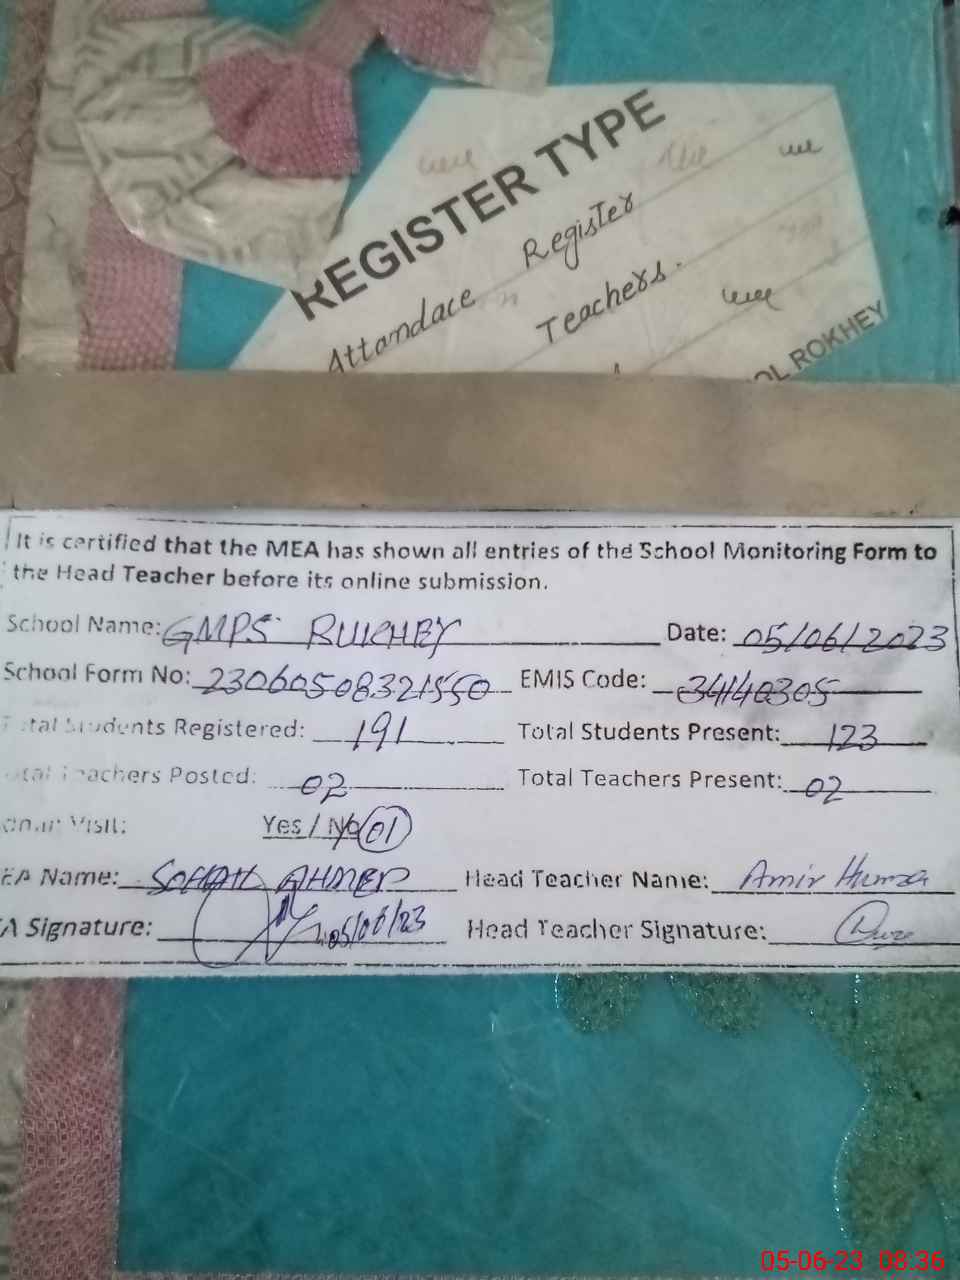 REGISTER TYPE
Attandace Register
Teachers.
OL ROKHEY
It is certified that the MEA has shown all entries of the School Monitoring Form to
the Head Teacher before its online submission.
School Name: GMPS RUKHEY Date: 05/06/2023
School Form No: 23060508321550 EMIS Code: 34140305
Total Students Registered: 191 Total Students Present: 123
Total Teachers Posted: 02 Total Teachers Present: 02
Visit: Yes / No 01
EA Name: SOHAIL AHMED Head Teacher Name: Amir Humza
A Signature: 05/06/23 Head Teacher Signature:
05-06-23 08:36